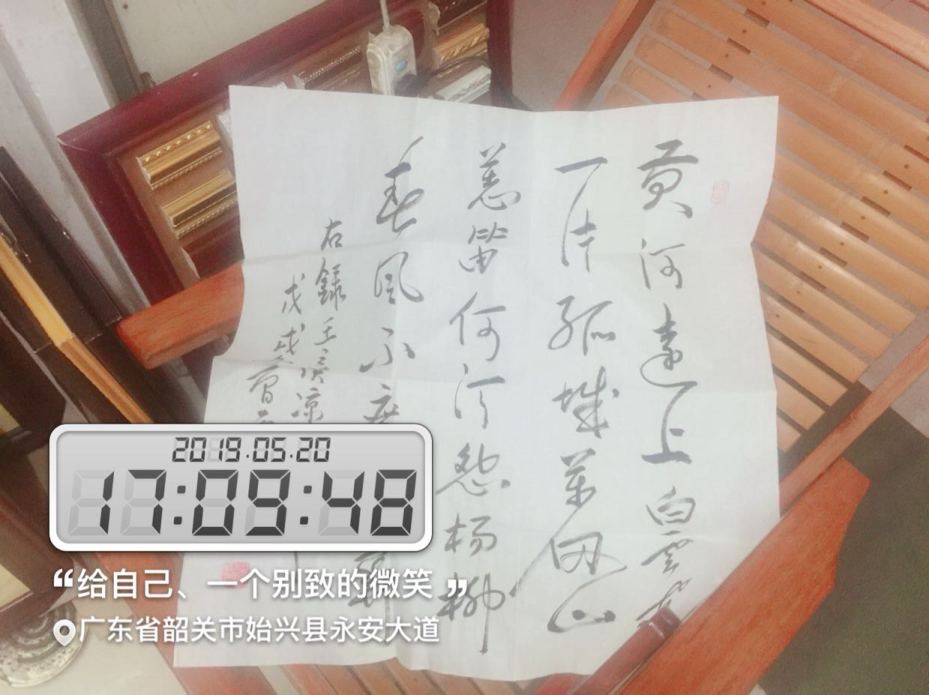 黄河遠上白雲
一片孤城萬仞山
羌笛何須怨楊柳
春風不度
右錄王之渙凉
戊戌
2019.05.20
17:09:48
“给自己、一个别致的微笑”
广东省韶关市始兴县永安大道